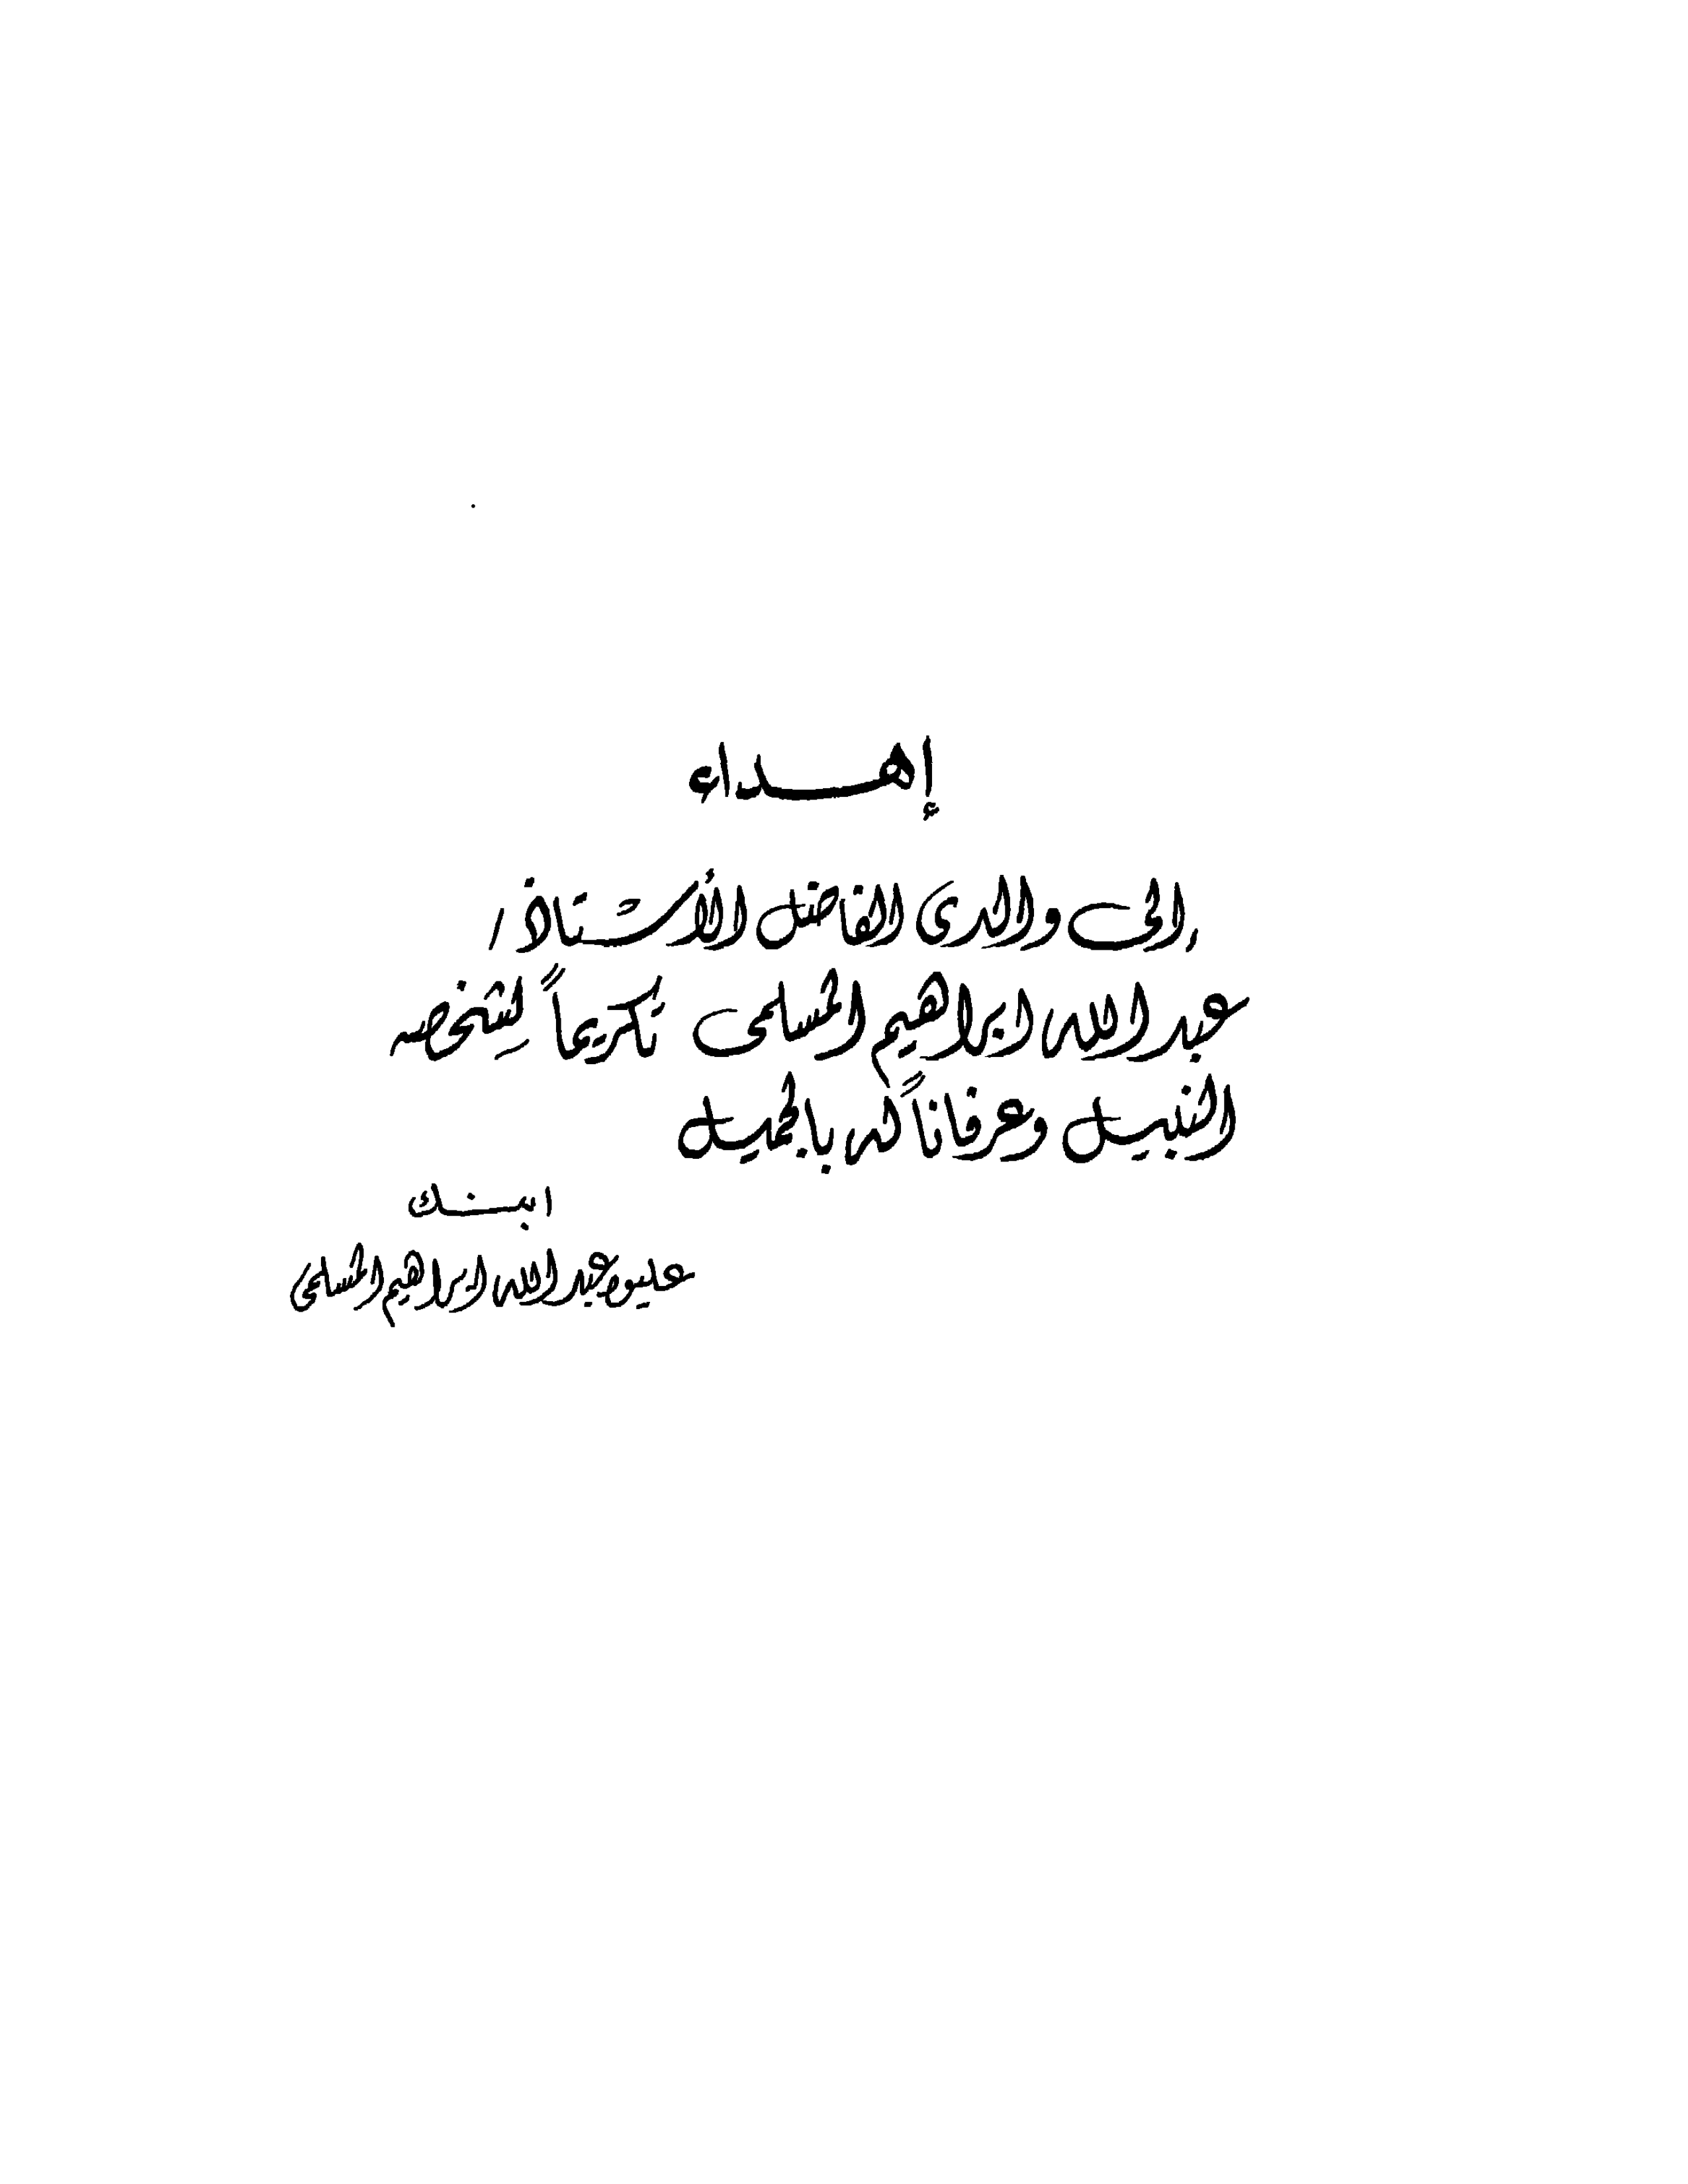 إهداء
إلى والدى الفاضل الأستاذ /
عبد الله ابراهيم المسلمى تكريماً لشخصه
النبيل وعرفاناً له بالجميل
ابنك
عليوه عبد الله ابراهيم المسلمى